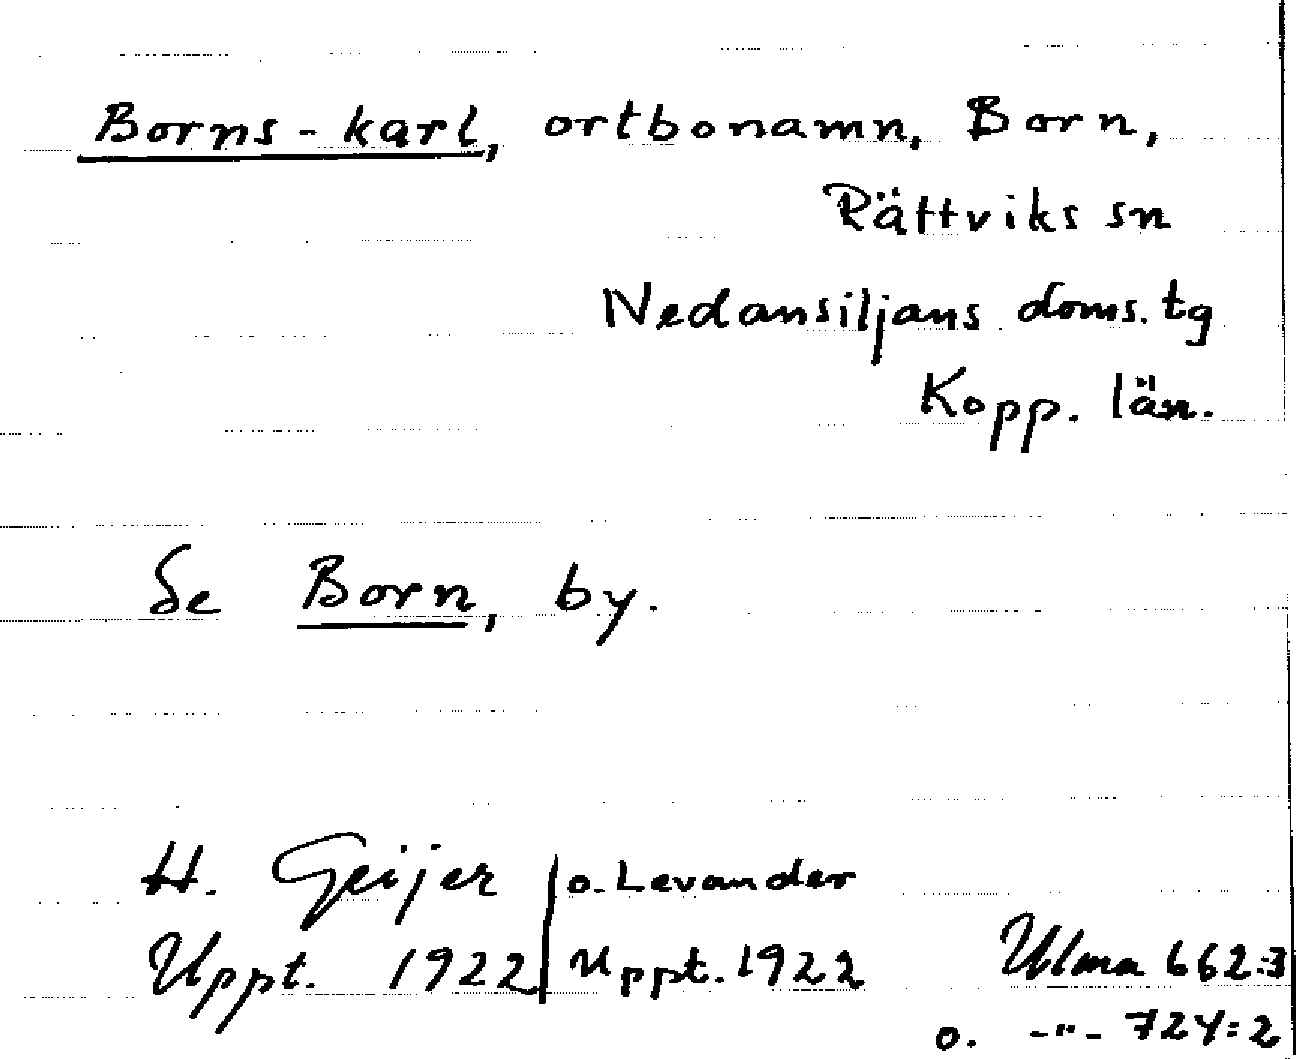 Borns-karl, ortbonamn, Born,
Rättviks sn
Nedansiljans doms. tg
Kopp. län.
Se Born, by.
H. Geijer
Uppt. 1922
o. Levander
Uppt. 1922
Ulma 662:3
o. -"- 724:2